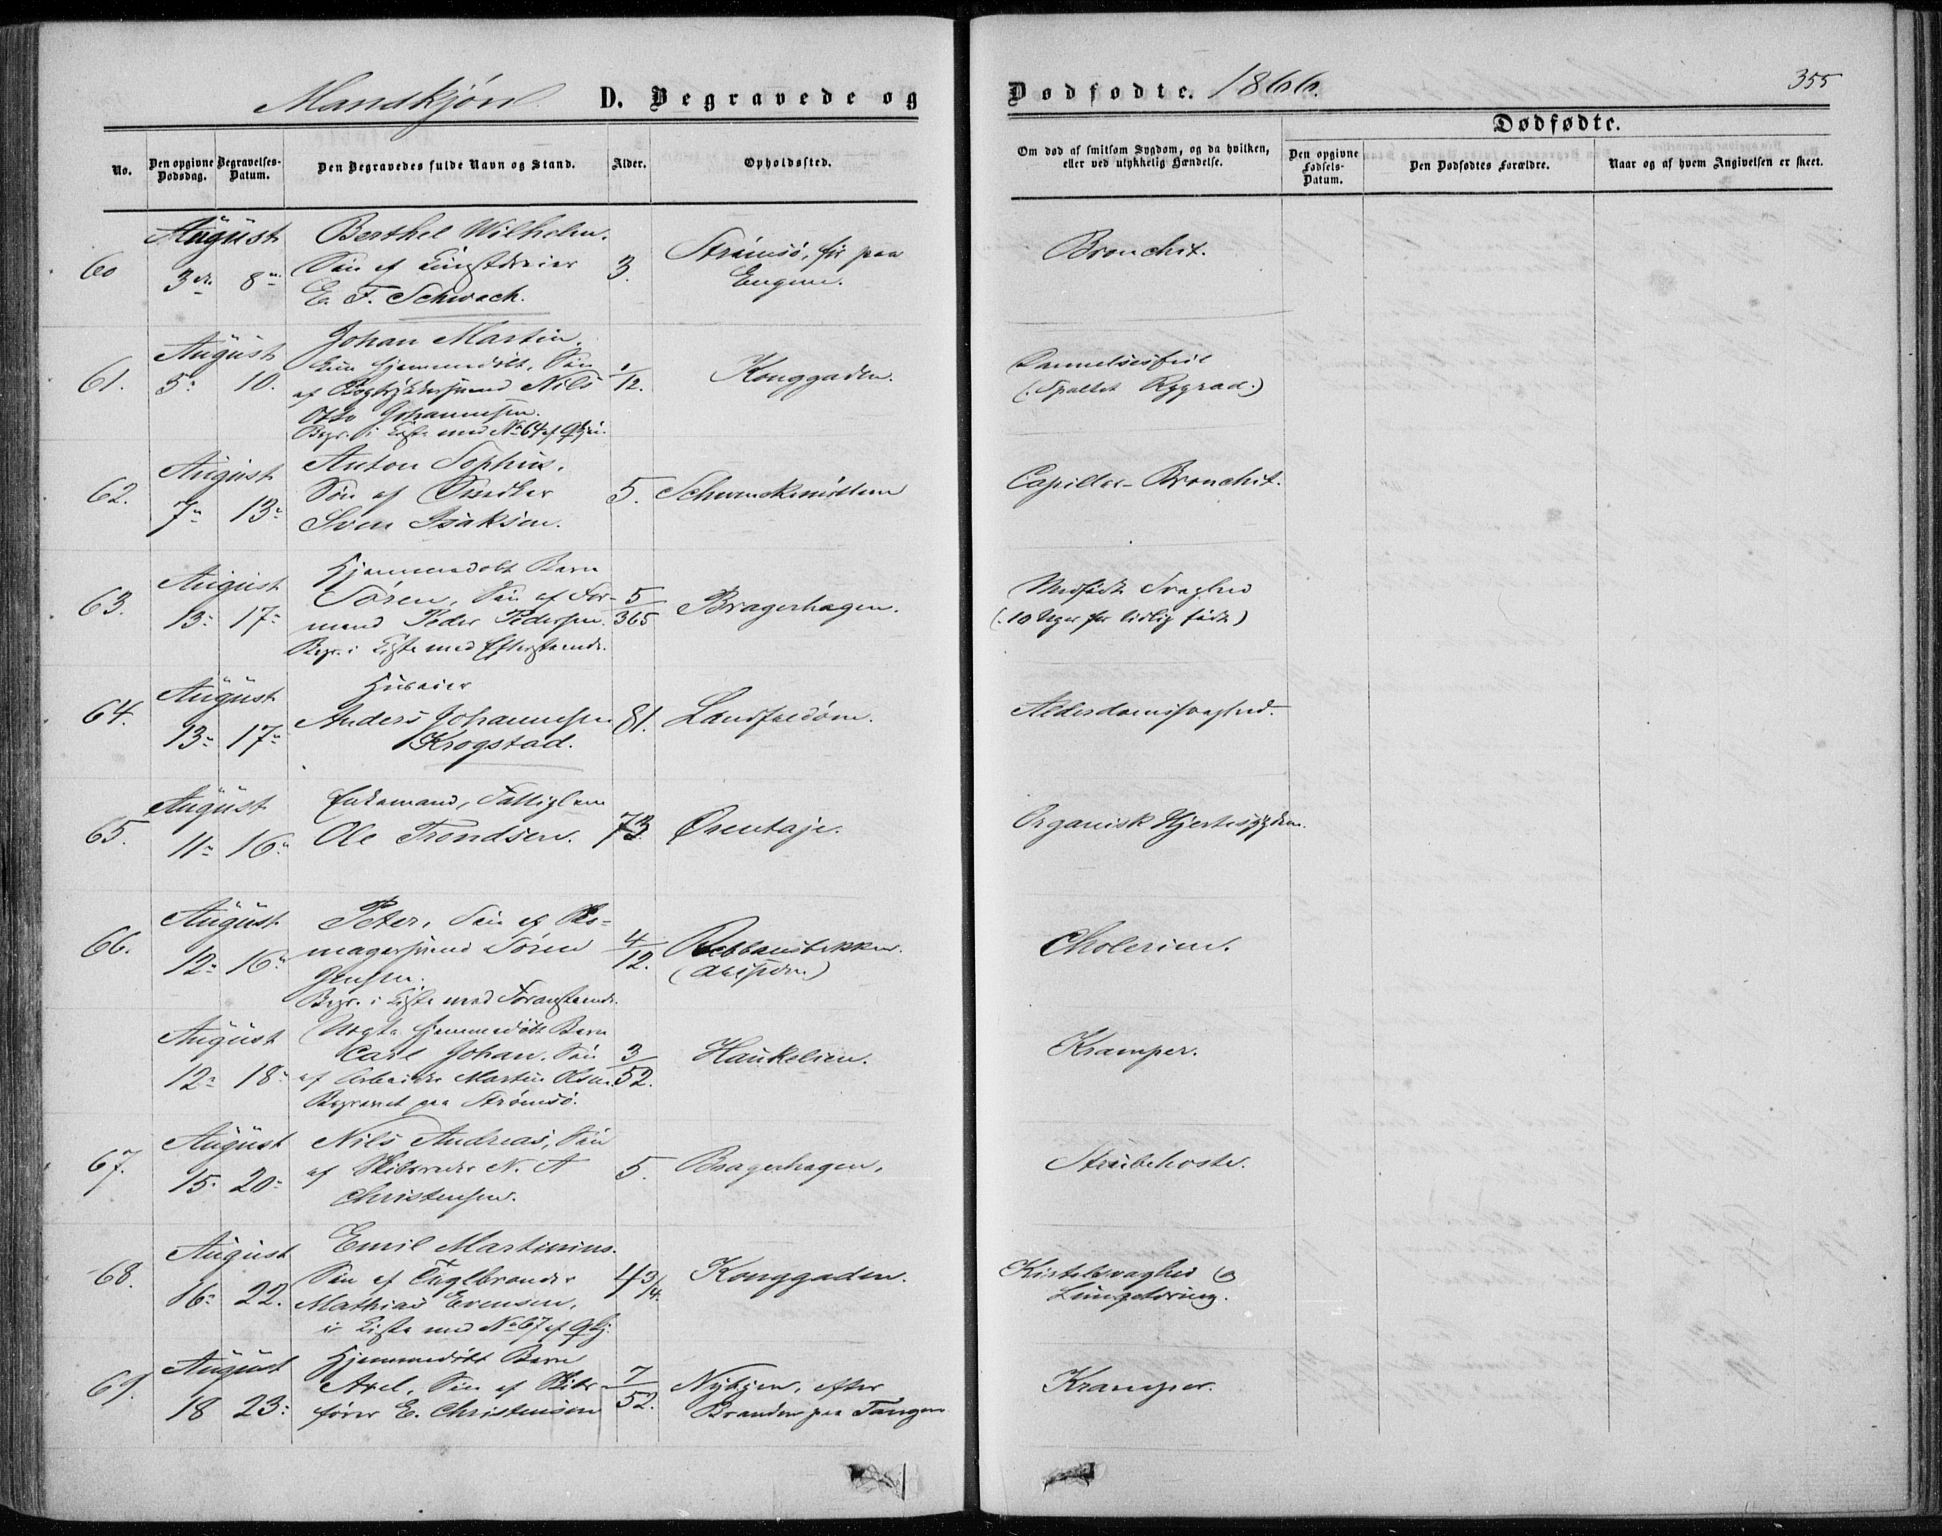 Mandkjøn D. Begravede og Dødfødte. 1866. 355
No.
Den opgivne Dødsdag.
Begravelses-Datum.
Den Begravedes fulde Navn og Stand.
Alder.
Opholdssted.
Om død af smitsom Sygdom, og da hvilken, eller ved ulykkelig Hændelse.
Dødfødte.
Den opgivne Fødsels-Datum.
Den Dødfødtes Forældre.
Naar og af hvem Angivelsen er skeet.
60
August
3die 8de
Berthel Wilhelm.
Søn af Kunstdreier
E. F. Schwach.
3.
Strømsø, før paa
Engene.
Bronchit.
61.
August
5te 10.
Johan Martin,
hjemmedøbt, Søn
af Bogtrykkersvend Nils
Otto Johannesen.
Begr. i Kiste med No 64 af Qkjøn.
1/12.
Konggaden.
Dannelsesfeil
(: Spaltet Rygrad.)
62.
August
7de 13de
Anton Sophus,
Søn af Snedker
Sven Isaksen.
5.
Schwenckesmitten
Capillar-Bronchit.
63.
August
13de 17de
Hjemmedøbt Barn
Søren, Søn af For-
mand Peder Pedersen.
Begr. i Kiste med Efterstaaende.
5/365
Bragerhagen.
Medfødt Svaghed
(: 10 Uger for tidlig født)
64.
August
13de 17de
Huseier
Anders Johannesen
Krogstad.
81.
Landfaldøen.
Alderdomssvaghed.
65.
August
11te 16de
Enkemand, Fattiglem
Ole Trondsen.
73
Ørentaje.
Organisk Hjertesygdom.
66.
August
12te 16de
Peter, Søn af Sko-
magersvend Søren
Jensen.
Begr. i Kiste med Foranstaaende.
4/12.
Cholerine.
August
12te 18de
Uægte hjemmedøbt Barn
Carl Johan, Søn
af Arbeider Martin Olsen.
Begravet paa Strømsø.
3/52.
Haukelien.
Kramper.
67.
August
15. 20de
Nils Andreas, Søn
af Skibsreder N. A
Christensen.
5.
Bragerhagen,
Strubehoste.
68.
August
16de 22.
Emil Martinius.
Søn af Teglbrænder
Mathias Evensen,
i Kiste med No 67 af Qkj.
4 3/4.
Konggaden.
Kirtelsvaghed og
Lungetæring.
69.
August
18 23de
Hjemmedøbt Barn
Axel, Søn af Skibs-
fører E. Christensen
7/52.
Nybyen, efter
Branden paa Tangen
Kramper.